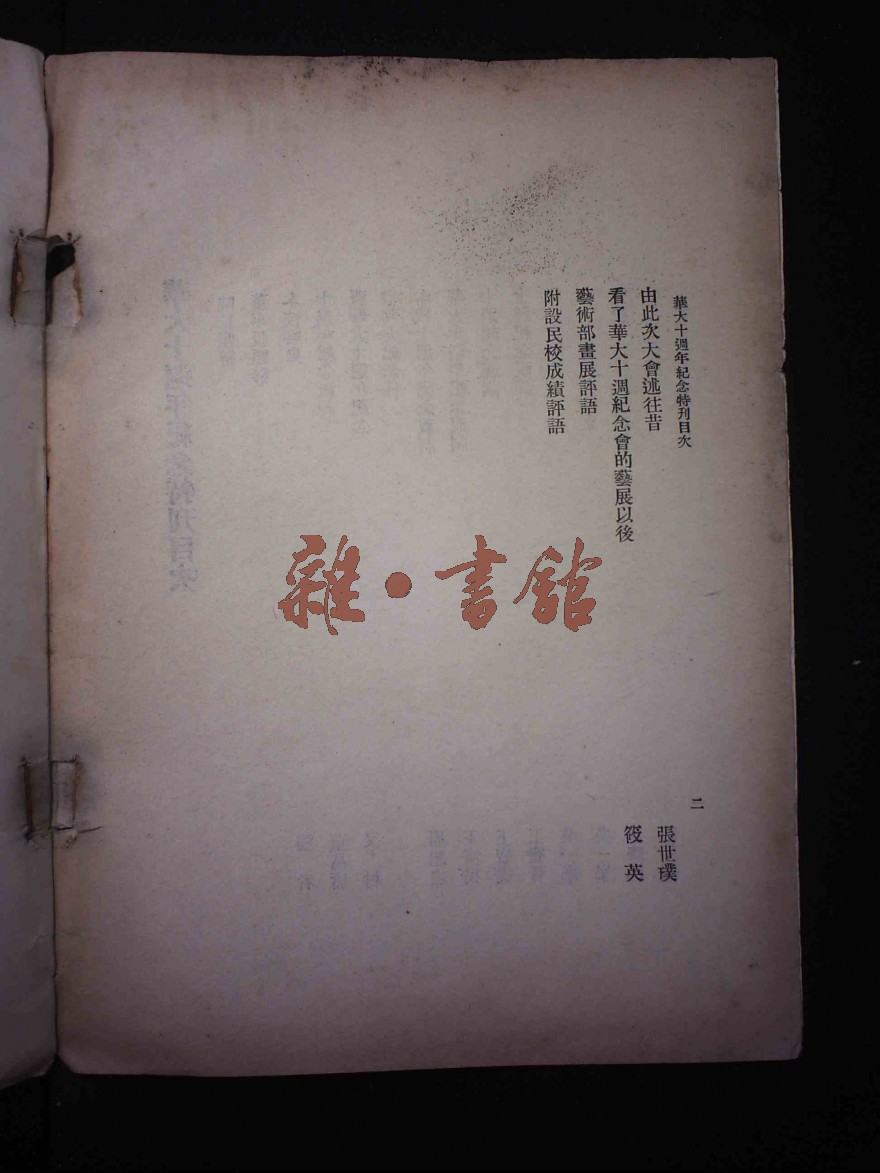 華大十週年紀念特刊目次
二
由此次大會述往昔
張世璞
看了華大十週紀念會的藝展以後
筱英
藝術部畫展評語
附設民校成績評語
雜·書館